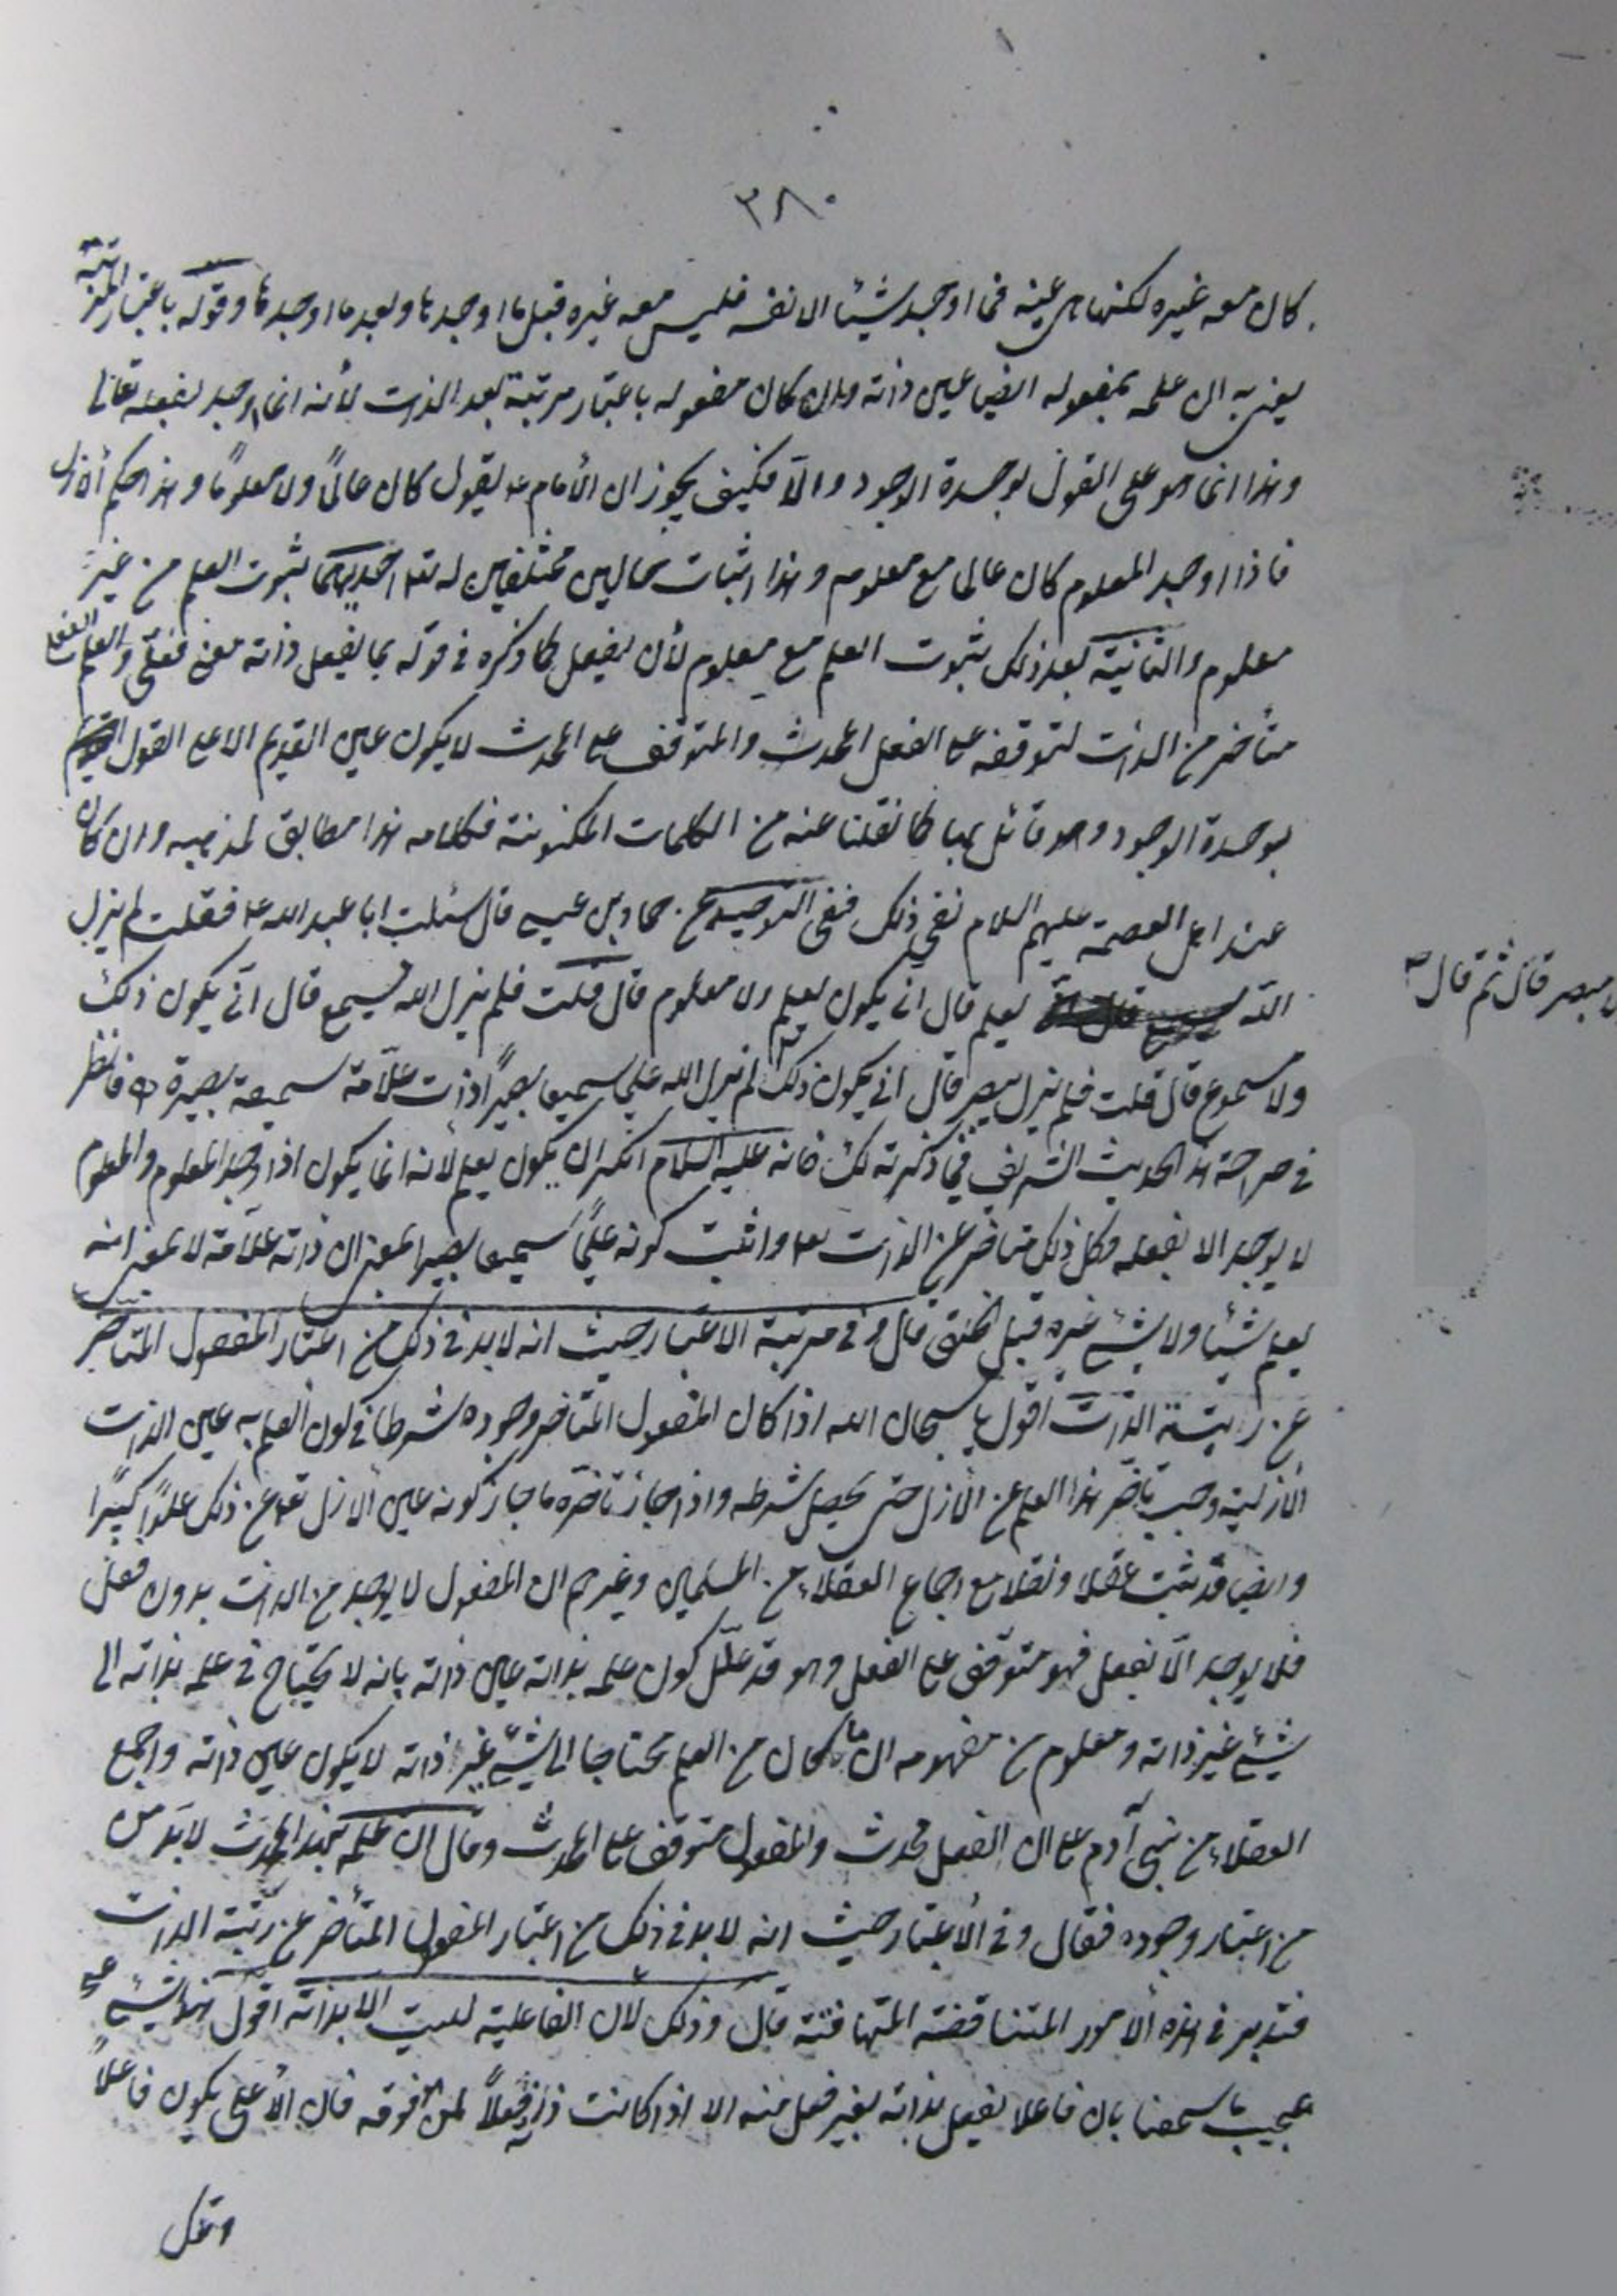 ٣٨٠
كان معه غيره لكنها هي عينه فما اوجد شيئا الا نفسه فليس معه غيره قبل ما اوجدها وبعد ما اوجدها وقوله باعتبار المرتبة
يعني به ان علمه بمفعوله ايضا عين ذاته وان كان مفعوله باعتبار مرتبة بعد الذات لأنه انما اوجد بفعله تعالى
وهذا انما هو على القول بوحدة الوجود والّا فكيف يجوز ان الأمام ع يقول كان عالماً ولا معلوماً وهذا حكم الأزل
فاذا اوجد المعلوم كان عالما مع معلوم وهذا اثبات حالين مختلفين له تع احديهما ثبوت العلم من غير
معلوم والثانية بعد ذلك ثبوت العلم مع معلوم لأن يفعل كما ذكره في قوله بما يفعل ذاته معنى فعلي والعلم الفعلي
متأخر من الذات لتوقفه على الفعل المحدث والمتوقف على المحدث لا يكون عين القديم الا على القول
بوحدة الوجود وهو قائل بها كما نقلنا عنه من الكلمات المكنونة فكلامه هذا مطابق لمذهبه وان كان
عند اهل العصمة عليهم السلام نفي ذلك ففي التوحيد عن حماد بن عيسى قال سئلت ابا عبد الله ع فقلت لم يزل
الله يعلم قال انى يكون يعلم ولا معلوم قال قلت فلم يزل الله يسمع قال انّى يكون ذلك
ولا مسموع قال قلت فلم يزل يبصر قال انى يكون ذلك لم يزل الله عليما سميعا بصيراً ذات علّامة سميعة بصيرة فانظر
ولا مبصر قال ثم قال صح
في صراحة هذا الحديث الشريف فيما ذكرته لك فانه عليه السلام انكر ان يكون يعلم لأنه انما يكون اذا وجد المعلوم والمعلوم
لا يوجد الا بفعله وكل ذلك متاخر عن الذات تع واثبت كونه عليماً سميعا بصيرا بمعنى ان ذاته علّامة لا بمعنى انه
يعلم شيئا ولا شيء غيره قبل الخلق قال وفي مرتبة الاعتبار حيث انه لا بد في ذلك من اعتبار المفعول المتاخر
عن رتبة الذات اقول يا سبحان الله اذا كان المفعول المتاخر وجوده شرطا في كون العلم به عين الذات
الأزلية وجب تأخر هذا العلم عن الأزل حتى يحصل شرطه واذا جاز تأخره ما جاز كونه عين الأزل تع عن ذلك علوّا كبيرًا
وايضا قد ثبت عقلا ونقلا مع اجماع العقلاء من المسلمين وغيرهم ان المفعول لا يوجد من الذات بدون فعل
فلا يوجد الّا بفعل فهو متوقف على الفعل وهو قد علّل كون علمه بذاته عين ذاته بانه لا يحتاج في علمه بذاته الى
شيء غير ذاته ومعلوم من مفهومه ان ما كان من العلم محتاجا الى شيء غير ذاته لا يكون عين ذاته واجمع
العقلاء من بني آدم على ان الفعل محدث والمفعول متوقف على المحدث وقال ان علمه بهذا المحدث لابدّ من
من اعتبار وجوده فقال وفي الأعتبار حيث انه لا بد في ذلك من اعتبار المفعول المتأخر عن رتبة الذات
فتدبر في هذه الأمور المتناقضة المتهافتة قال وذلك لأن الفاعلية ليست الا بذاته اقول هذا شيء
عجيب ما سمعنا بان فاعلا يفعل بذاته بغير فعل منه الا اذا كانت ذاته فعلاً لمن فوقه فان الأعلى يكون فاعلاً